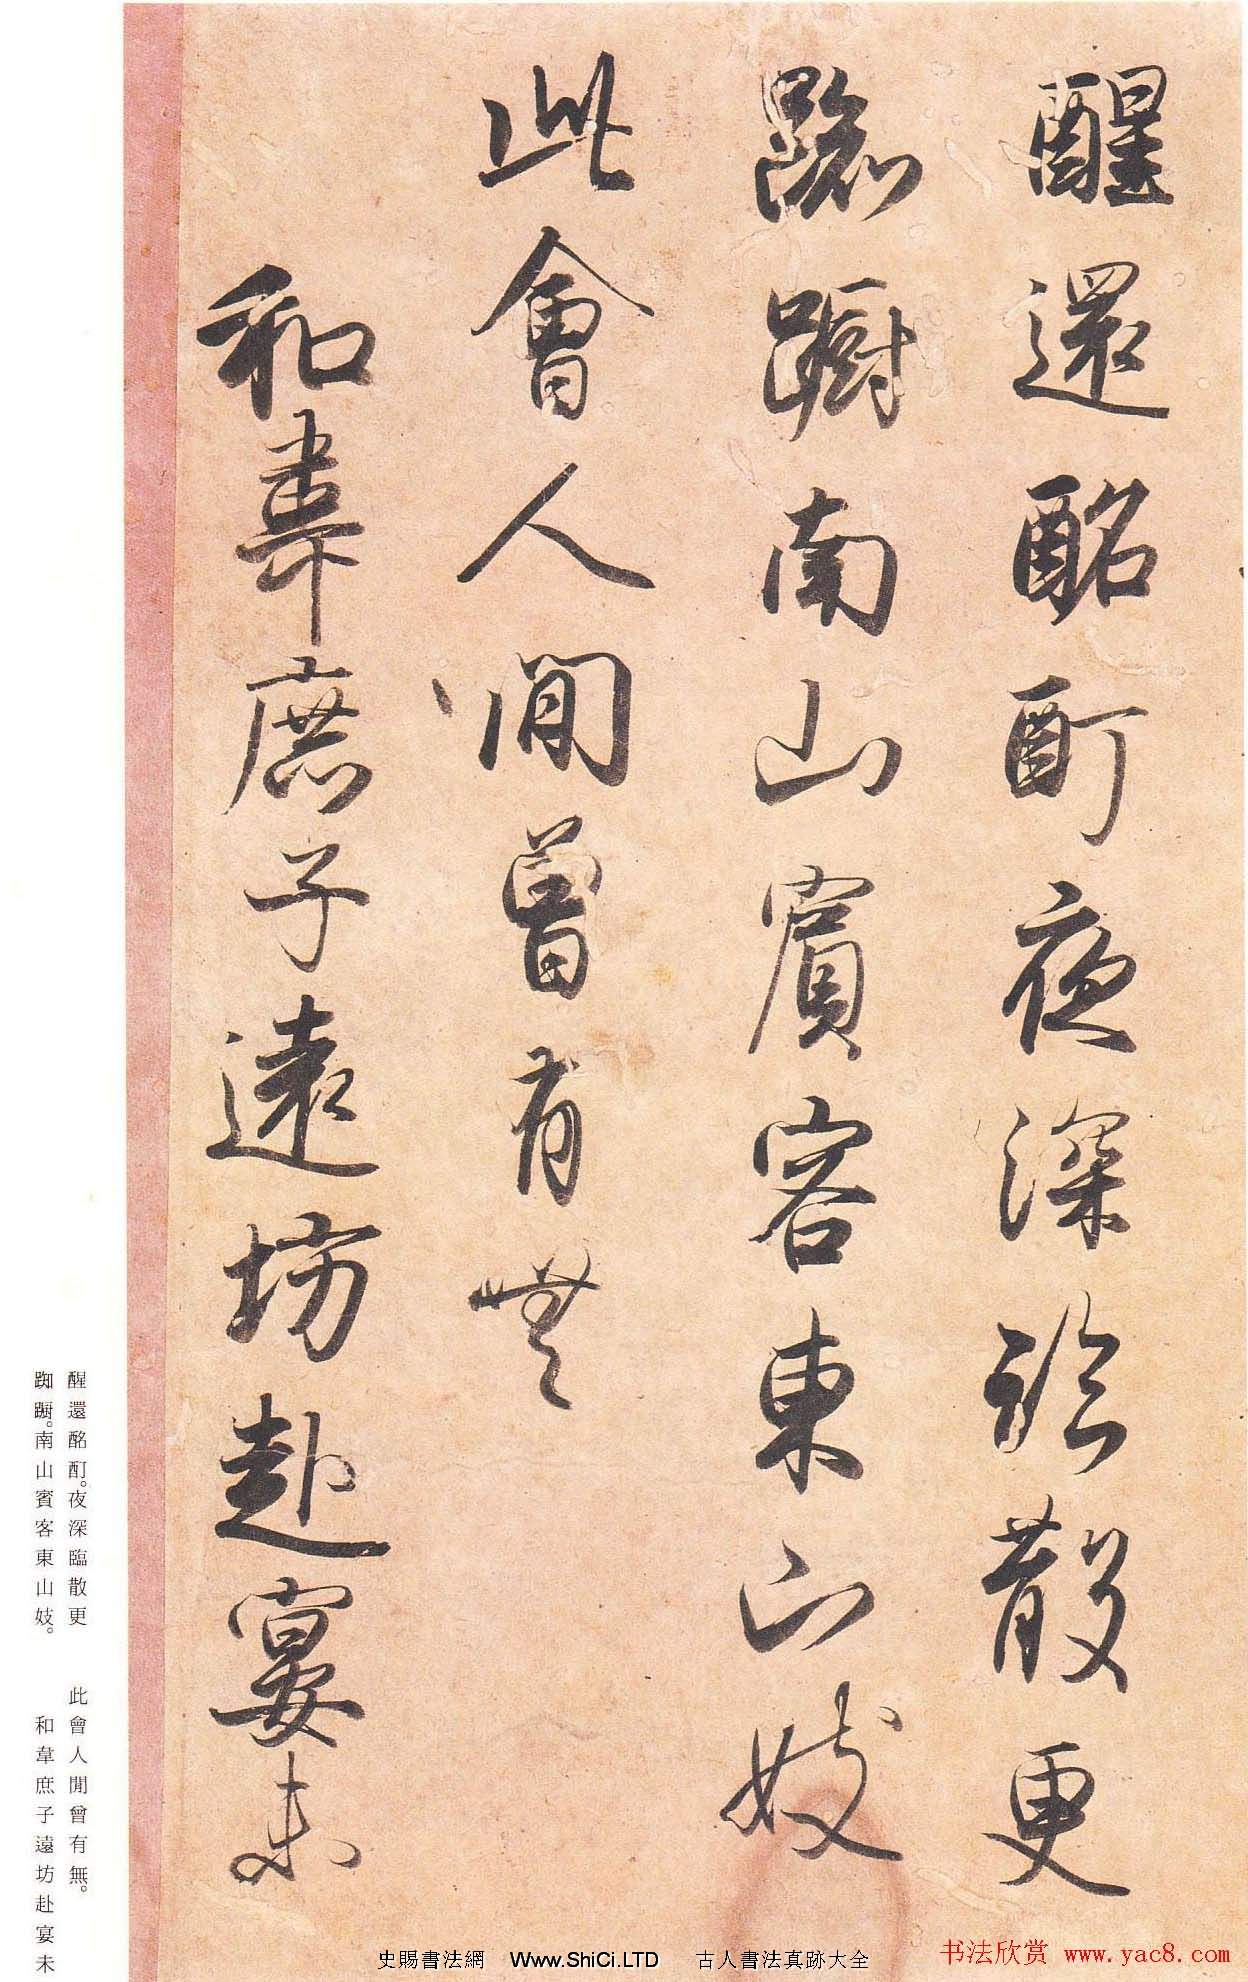 醒還酩酊夜深臨散更
踟躕南山賓客東山妓
此會人間曾有無
和韋庶子遠坊赴宴未
醒還酩酊。夜深臨散更
踟躕。南山賓客東山妓。
此會人閒曾有無。
和韋庶子遠坊赴宴未
史賜書法網 Www.ShiCi.LTD 古人書法真跡大全
书法欣赏 www.yac8.com